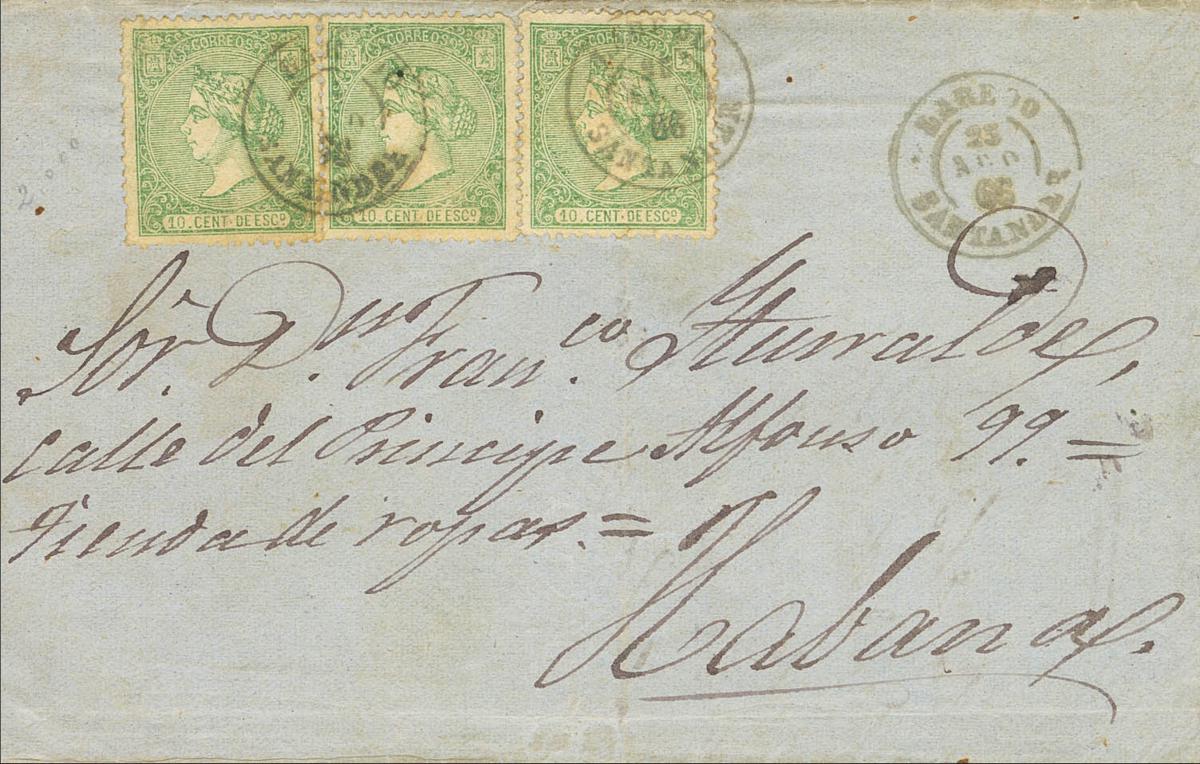 CORREOS CORREOS CORREOS
10. CENT. DE ESCº 10. CENT. DE ESCº 10. CENT. DE ESCº
SANTANDER
SANTANDER
66
LAREDO
25
AGO
66
SANTANDER
Sor. Dn. Franco. Yturralde,
calle del Principe Alfonso 99. =
tienda de ropas. =
Habana.